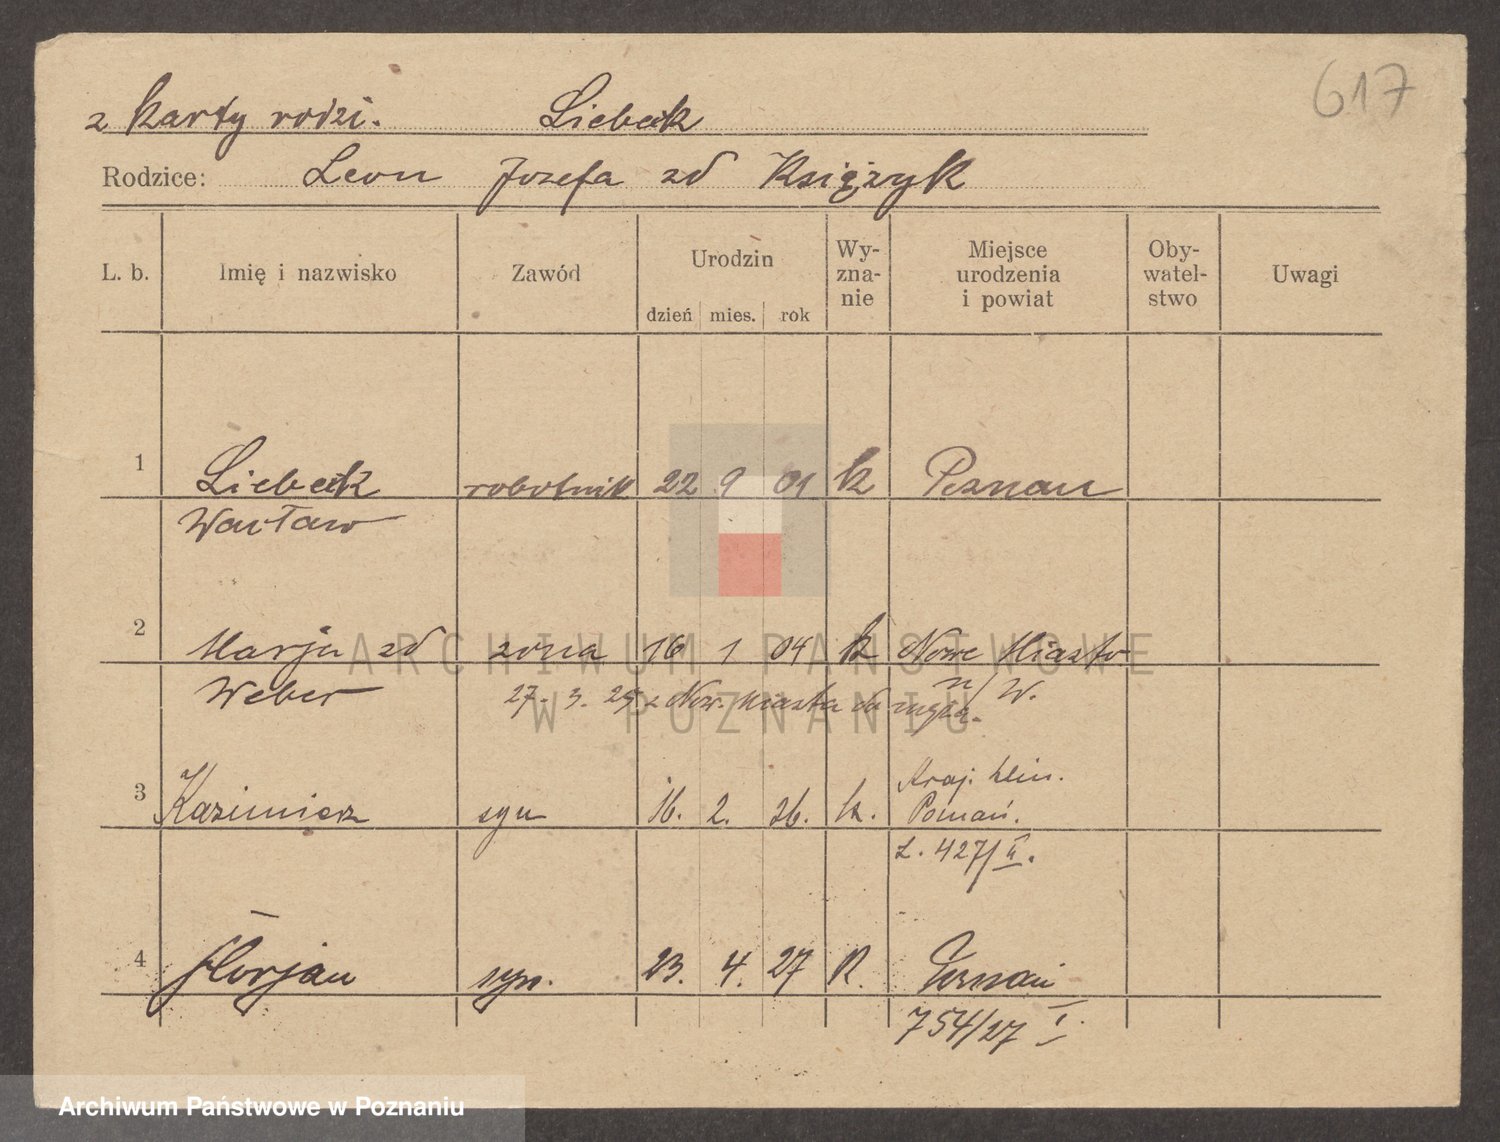 617
z karty rodzi. Liebeck
Rodzice: Leon Jozefa zd Książyk
L. b. Imię i nazwisko Zawód Urodzin dzień mies. rok Wy-zna-nie Miejsce urodzenia i powiat Oby-watel-stwo Uwagi
1 Liebeck robotnik 22 9 01 k Poznan
Wacław
2 Marja zd żona 16 1 04 k Nowe Miasto
Weber 27. 3. 25 z Now. Miasta do n/W.
ARCHIWUM PAŃSTWOWE
W POZNANIU
Kraj. klin.
3 Kazimierz syn 16. 2. 26. k. Poznań.
L. 427/II.
4 Florjan syn. 23. 4. 27 k. Poznań
754/27 I.
Archiwum Państwowe w Poznaniu